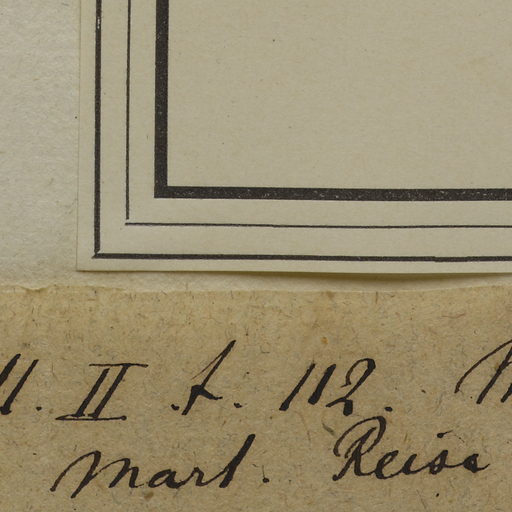 II. t. 112.
Mart. Reise